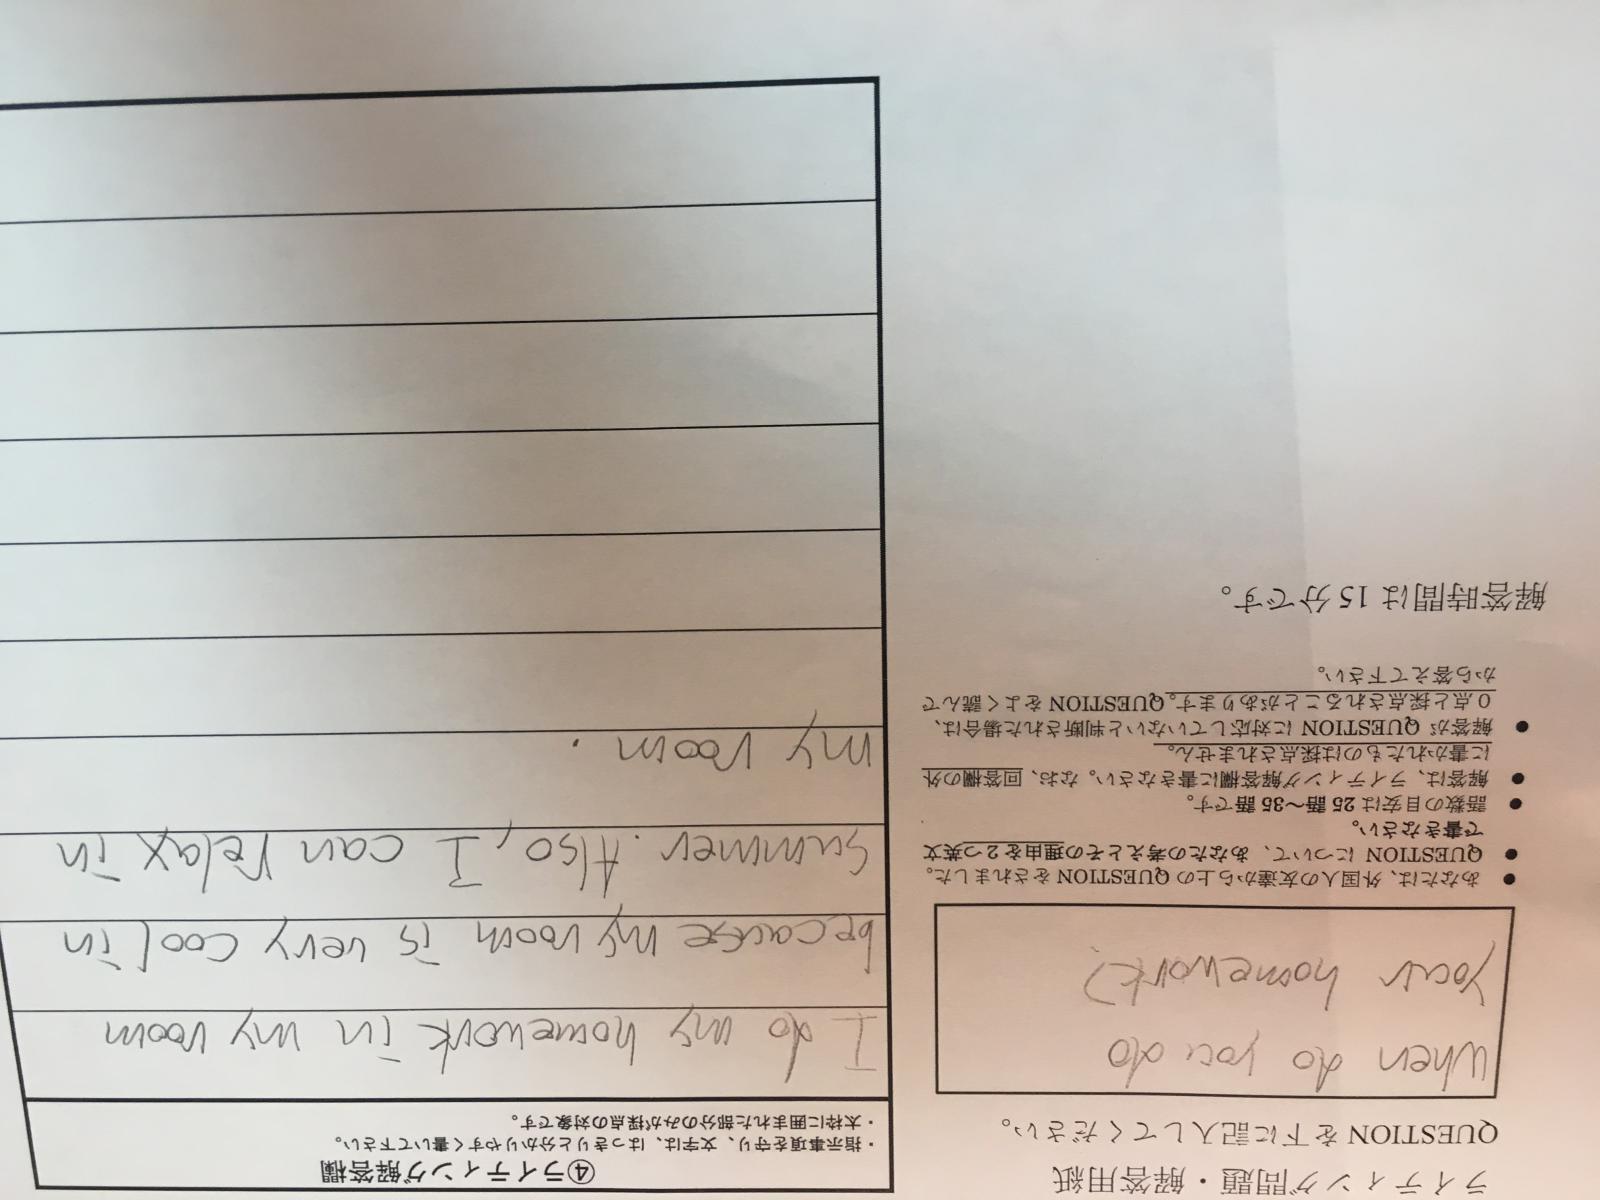 ライティング問題・解答用紙
QUESTION を下に記入してください。
When do you do
your homework?
● あなたは、外国人の友達から上の QUESTION をされました。
● QUESTION について、あなたの考えとその理由を2つ英文
で書きなさい。
● 語数の目安は 25 語～35 語です。
● 解答は、ライティング解答欄に書きなさい。なお、回答欄の外
に書かれたものは採点されません。
● 解答が QUESTION に対応していないと判断された場合は、
0 点と採点されることがあります。QUESTION をよく読んで
から答えて下さい。
解答時間は 15 分です。
④ライティング解答欄
・指示事項を守り、文字は、はっきりと分かりやすく書いて下さい。
・太枠に囲まれた部分のみが採点の対象です。
I do my homework in my room
because my room is very cool in
summer. Also, I can relax in
my room.